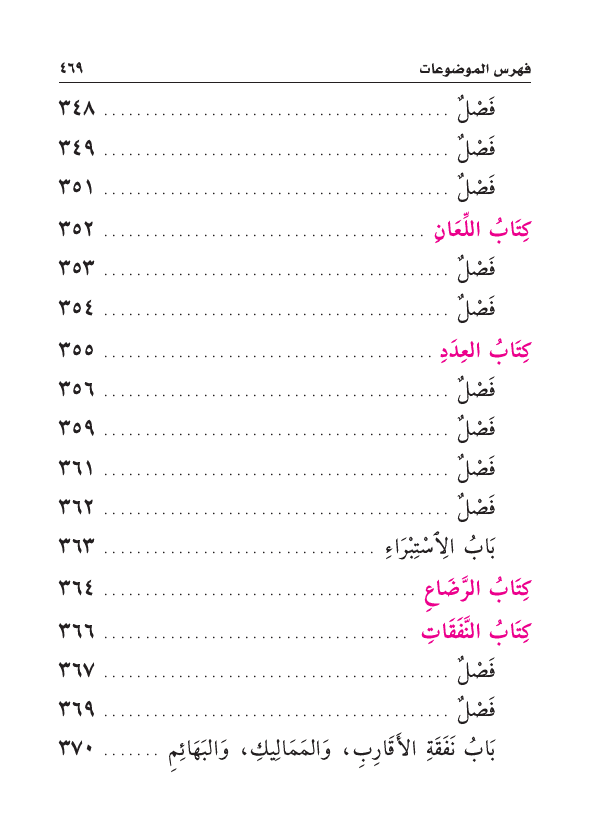 فهرس الموضوعات ٤٦٩
فَصْلٌ ........................................ ٣٤٨
فَصْلٌ ........................................ ٣٤٩
فَصْلٌ ........................................ ٣٥١
كِتَابُ اللِّعَانِ ...................................... ٣٥٢
فَصْلٌ ........................................ ٣٥٣
فَصْلٌ ........................................ ٣٥٤
كِتَابُ العِدَدِ ...................................... ٣٥٥
فَصْلٌ ........................................ ٣٥٦
فَصْلٌ ........................................ ٣٥٩
فَصْلٌ ........................................ ٣٦١
فَصْلٌ ........................................ ٣٦٢
بَابُ الِٱسْتِبْرَاءِ ................................ ٣٦٣
كِتَابُ الرَّضَاعِ .................................... ٣٦٤
كِتَابُ النَّفَقَاتِ .................................... ٣٦٦
فَصْلٌ ........................................ ٣٦٧
فَصْلٌ ........................................ ٣٦٩
بَابُ نَفَقَةِ الأَقَارِبِ، وَالمَمَالِيكِ، وَالبَهَائِمِ ....... ٣٧٠